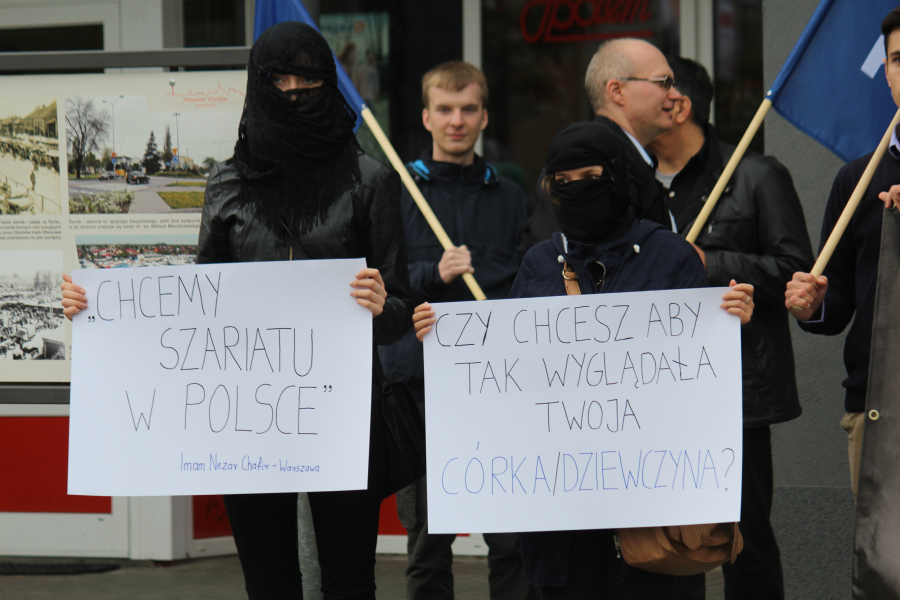 Społem
„CHCEMY
SZARIATU
W POLSCE”
Imam Nezar Chafir - Warszawa
CZY CHCESZ ABY
TAK WYGLĄDAŁA
TWOJA
CÓRKA/DZIEWCZYNA?